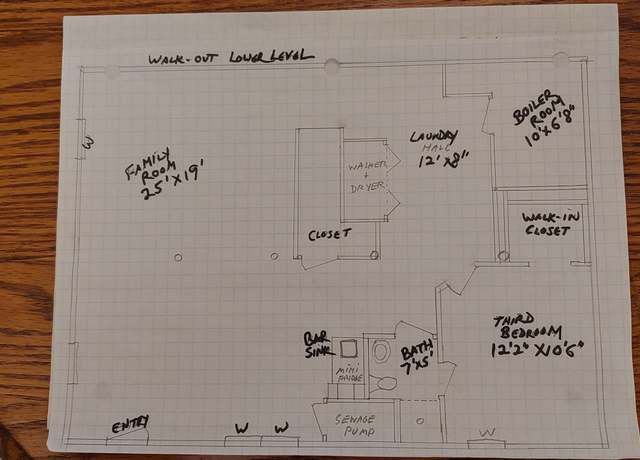 WALK-OUT LOWER LEVEL
W
FAMILY
ROOM
25' X 19'
WASHER
+
DRYER
CLOSET
LAUNDRY
HALL
12' X 8"
BOILER
ROOM
10' X 6'8"
WALK-IN
CLOSET
THIRD
BEDROOM
12'2" X 10'6"
BAR
SINK
MINI
FRIDGE
BATH
7' X 5'
SEWAGE
PUMP
ENTRY
W
W
W